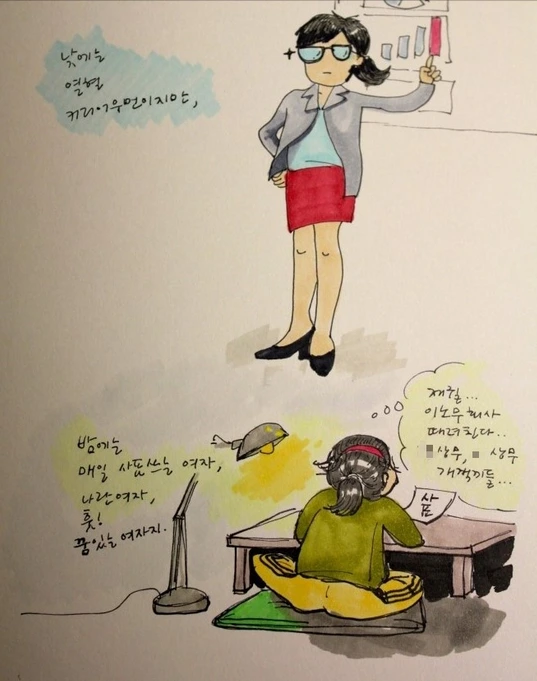 낮에는
열혈
커리어우먼이지만,
밤에는
매일 사표쓰는 여자,
나란여자,
훗!
꿈있는 여자지.
재길...
이노무회사
때려친다..
상무, 상무
개객끼들...
사표